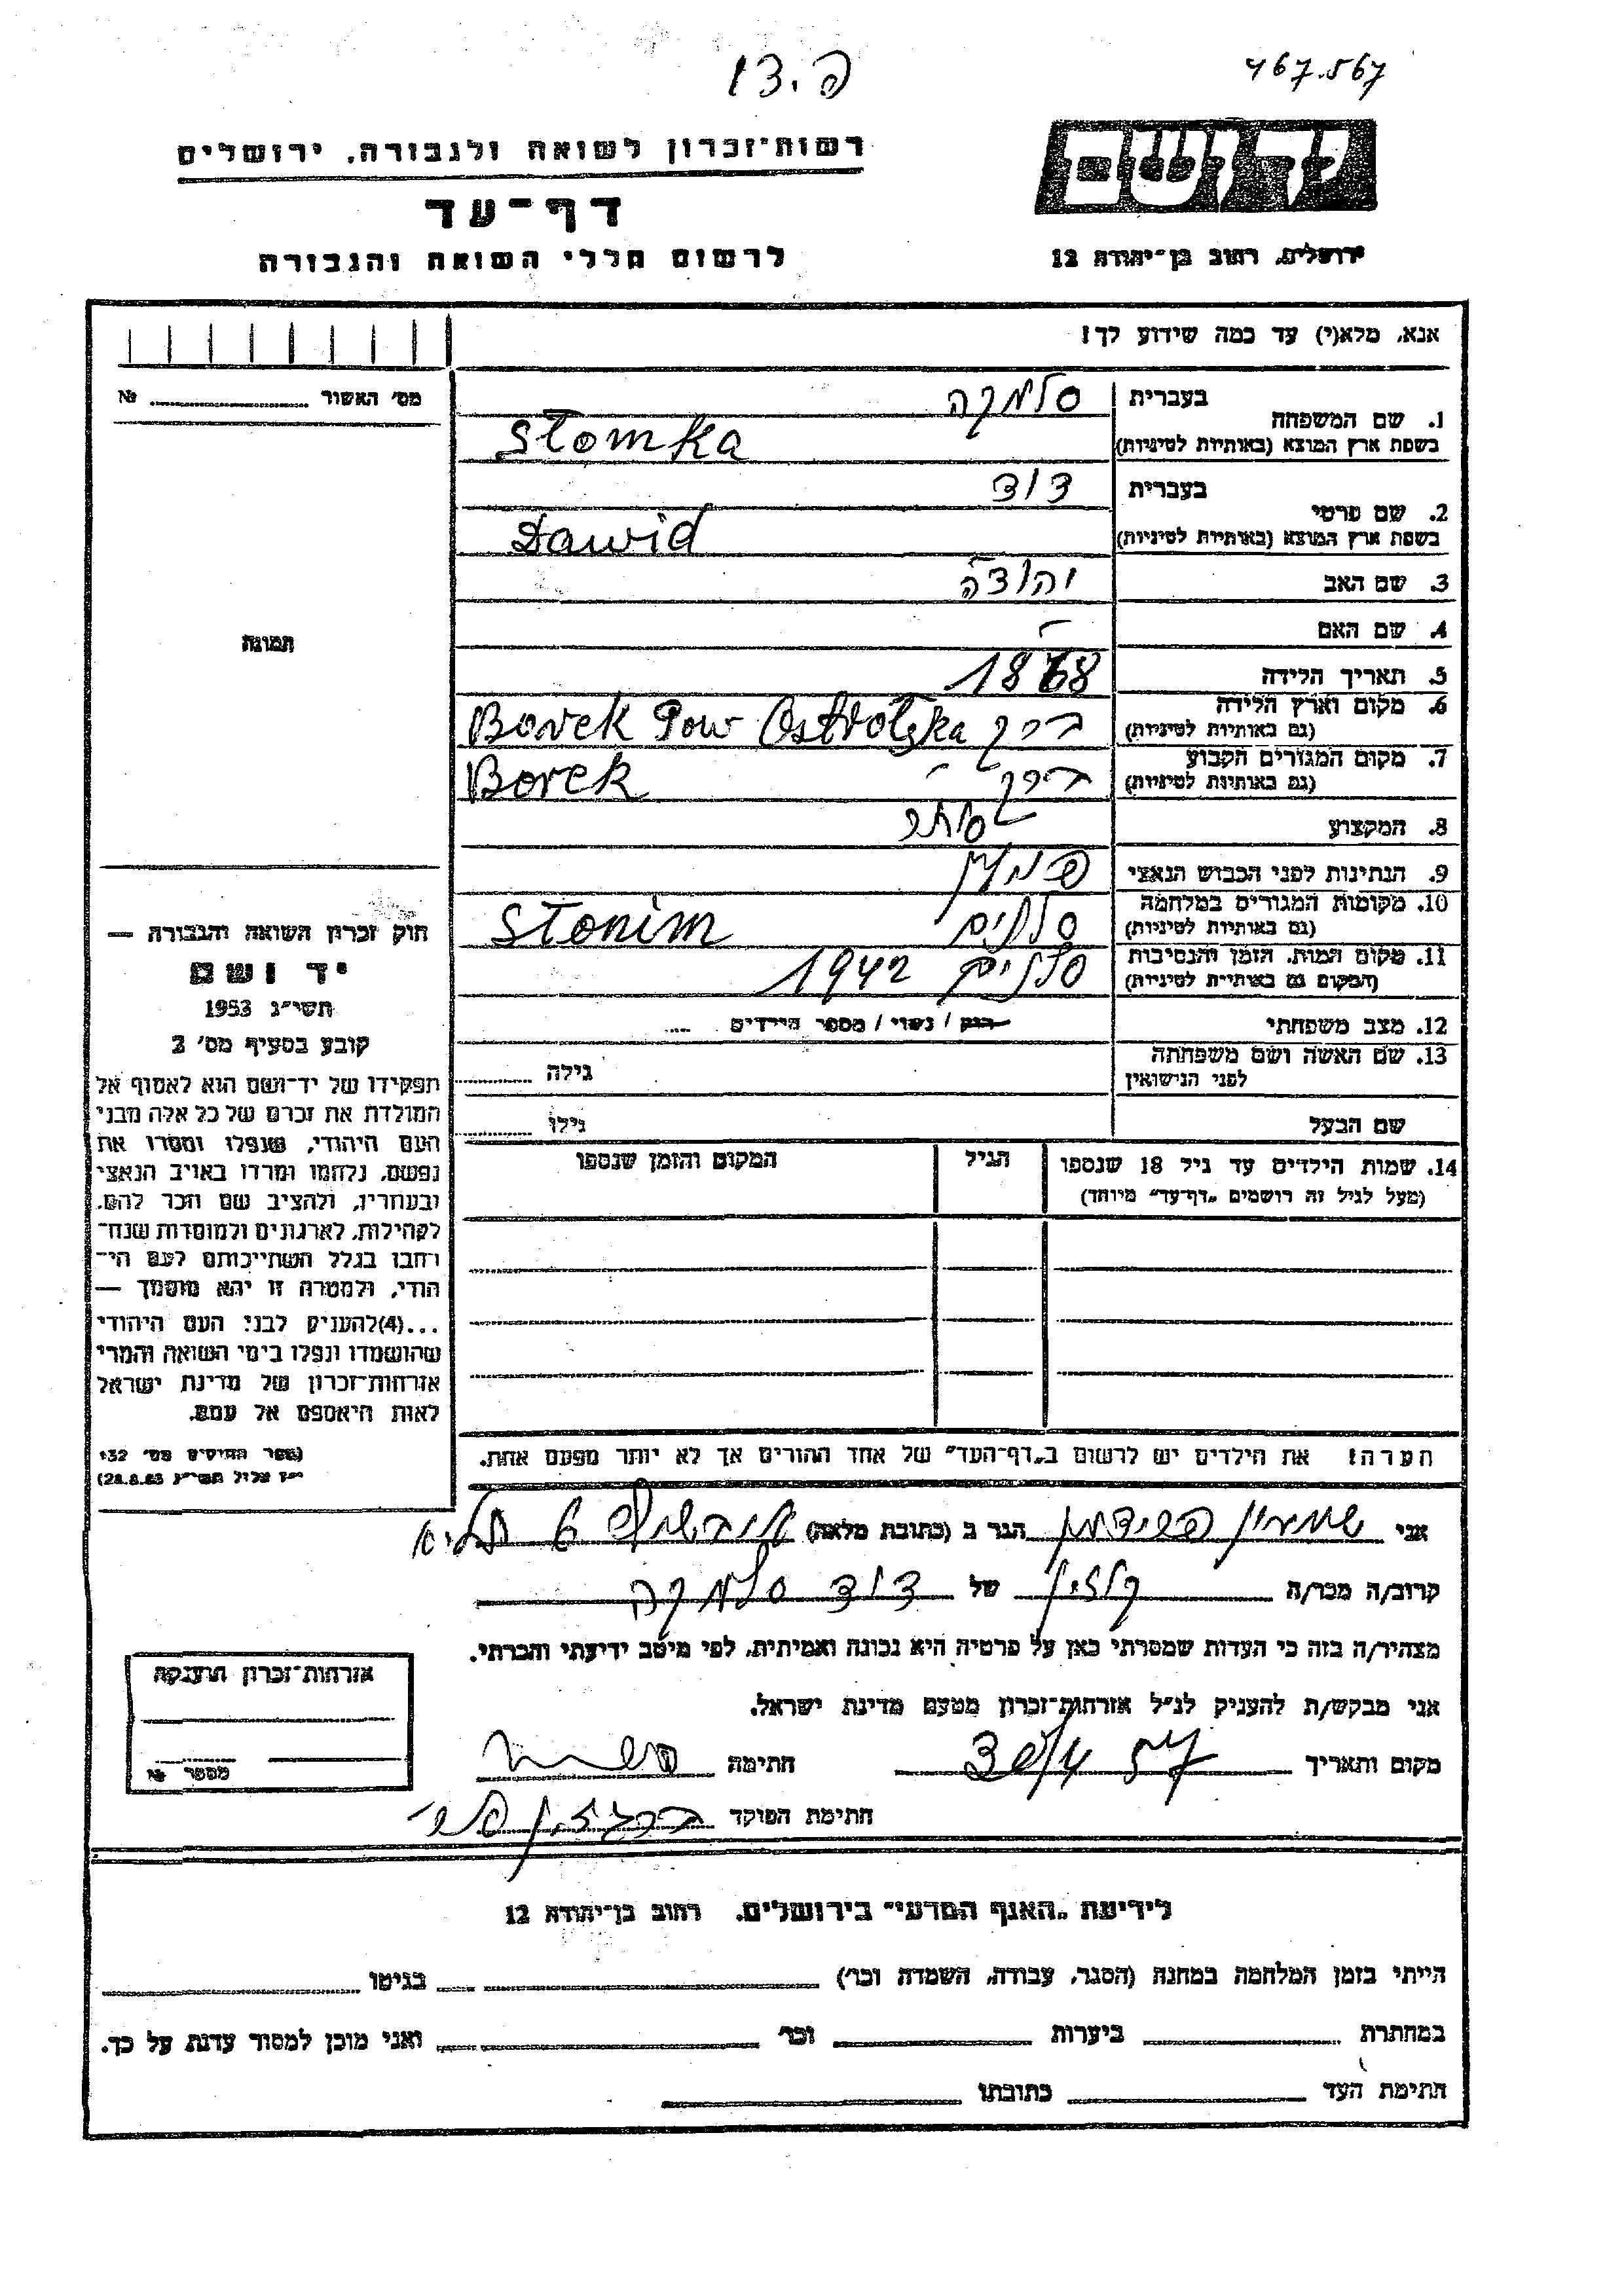 ד.צו
467.567
יד ושם
רשות־זכרון לשואה ולגבורה, ירושלים
דף־עד
לרשום חללי השואה והגבורה
ירושלים, רחוב בן־יהודה 12
אנא, מלא(י) עד כמה שידוע לך!
מס׳ האשור №
1. שם המשפחה
בעברית סלמקה
בשפת ארץ המוצא (באותיות לטיניות) Słomka
2. שם פרטי
בעברית דוד
בשפת ארץ המוצא (באותיות לטיניות) Dawid
3. שם האב יהודה
4. שם האם -
5. תאריך הלידה 1868
6. מקום וארץ הלידה
(גם באותיות לטיניות) ברק Borek Pow Ostrołęka
7. מקום המגורים הקבוע
(גם באותיות לטיניות) ברק Borek
8. המקצוע סוחר
9. הנתינות לפני הכבוש הנאצי פולין
10. מקומות המגורים במלחמה
(גם באותיות לטיניות) סלונים Słonim
11. מקום המות, הזמן והנסיבות
(המקום גם באותיות לטיניות) סלונים 1942
12. מצב משפחתי רווק / נשוי / מספר הילדים
13. שם האשה ושם משפחתה
לפני הנישואין גילה
שם הבעל גילו
14. שמות הילדים עד גיל 18 שנספו הגיל המקום והזמן שנספו
(מעל לגיל זה רושמים „דף־עד״ מיוחד)
הערה! את הילדים יש לרשום ב„דף־העד״ של אחד ההורים אך לא יותר מפעם אחת.
תמונה
חוק זכרון השואה והגבורה —
יד ושם
תשי״ג 1953
קובע בסעיף מס׳ 2
תפקידו של יד־ושם הוא לאסוף אל
המולדת את זכרם של כל אלה מבני
העם היהודי, שנפלו ומסרו את
נפשם, נלחמו ומרדו באויב הנאצי
ובעוזריו, ולהציב שם וזכר להם,
לקהילות, לארגונים ולמוסדות שנח־
רבו בגלל השתייכותם לעם הי־
הודי, ולמטרה זו יהא מוסמך —
...(4)להעניק לבני העם היהודי
שהושמדו ונפלו בימי השואה והמרי
אזרחות־זכרון של מדינת ישראל
לאות היאספם אל עמם.
(ספר החוקים מס׳ 132
י״ז אלול תשי״ג 28.8.53)
אני שמעון פרידמן הגר ב (כתובת מלאה)
קרוב/ה מכר/ה של דוד סלמקה
מצהיר/ה בזה כי העדות שמסרתי כאן על פרטיה היא נכונה ואמיתית, לפי מיטב ידיעתי והכרתי.
אני מבקש/ת להעניק לנ״ל אזרחות־זכרון מטעם מדינת ישראל.
מקום ותאריך חתימה
חתימת הפוקד
אזרחות־זכרון הוענקה
מספר №
לידיעת „האגף המדעי״ בירושלים, רחוב בן־יהודה 12
הייתי בזמן המלחמה במחנה (הסגר, עבודה, השמדה וכו׳) בגיטו
במחתרת ביערות וכו׳ ואני מוכן למסור עדות על כך.
חתימת העד כתובתו